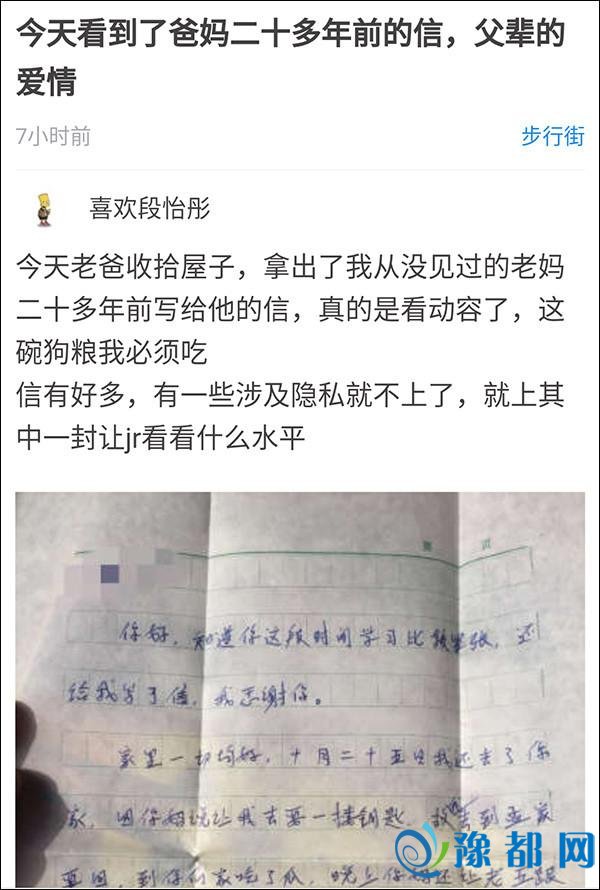 今天看到了爸妈二十多年前的信，父辈的
爱情
7小时前
步行街
喜欢段怡彤
今天老爸收拾屋子，拿出了我从没见过的老妈
二十多年前写给他的信，真的是看动容了，这
碗狗粮我必须吃
信有好多，有一些涉及隐私就不上了，就上其
中一封让jr看看什么水平
第 页
你好，知道你这段时间学习比较紧张，还
给我写了信，我感谢你。
家里一切均好，十月二十五日我还去了你
家，因你妈说让我去要一搂钥匙，我到
到你们家吃了瓜，晚上你妈还让老五跟
豫都网